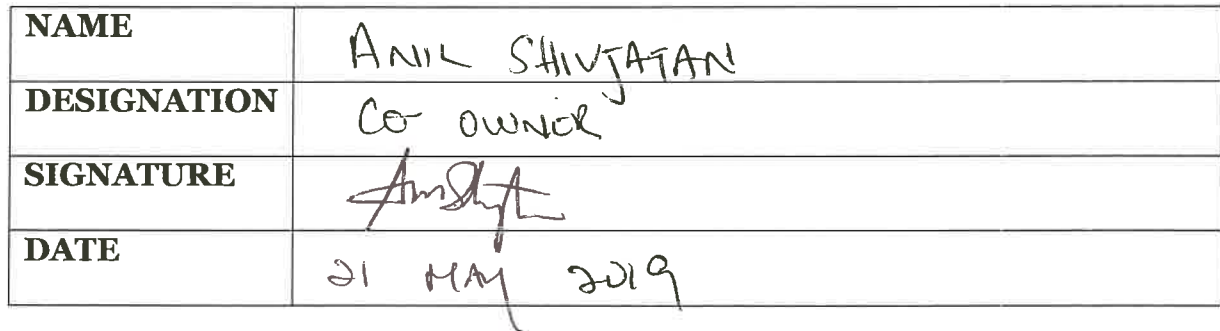 NAME ANIL SHIVJATAN
DESIGNATION CO OWNER
SIGNATURE
DATE 21 MAY 2019